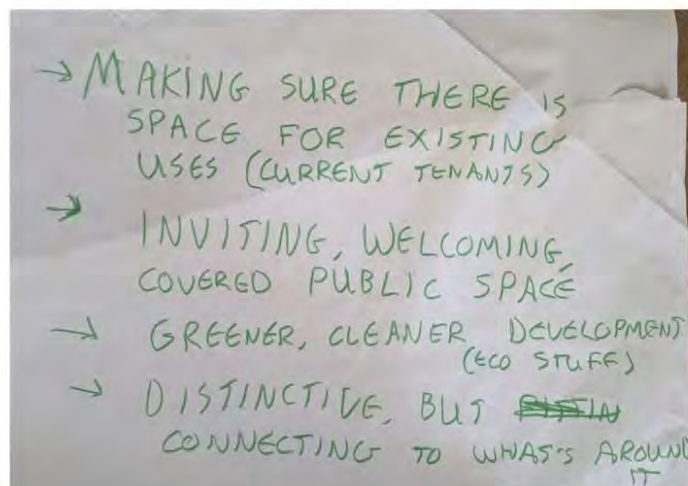 → MAKING SURE THERE IS
SPACE FOR EXISTING
USES (CURRENT TENANTS)
→ INVITING, WELCOMING,
COVERED PUBLIC SPACE
→ GREENER, CLEANER DEVELOPMENT
(ECO STUFF)
→ DISTINCTIVE, BUT
CONNECTING TO WHAS'S AROUND
IT